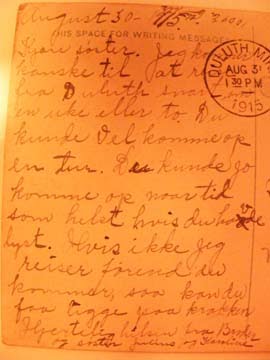 August 30-
THIS SPACE FOR WRITING MESSAGES
DULUTH, MINN
AUG 31
1 30 PM
1915
Kjære søster. Jeg
kanske til at re
fra Duluth snar
en uke eller to Du
kunde vel komme op
en tur. Du kunde jo
komme op naar tid
som helst hvis du havde
lyst. Hvis ikke jeg
reiser førend du
kommer, saa kan du
faa ligge paa krokken
Hjertelig hilsen fra Broder
og søster Julius og Karoline